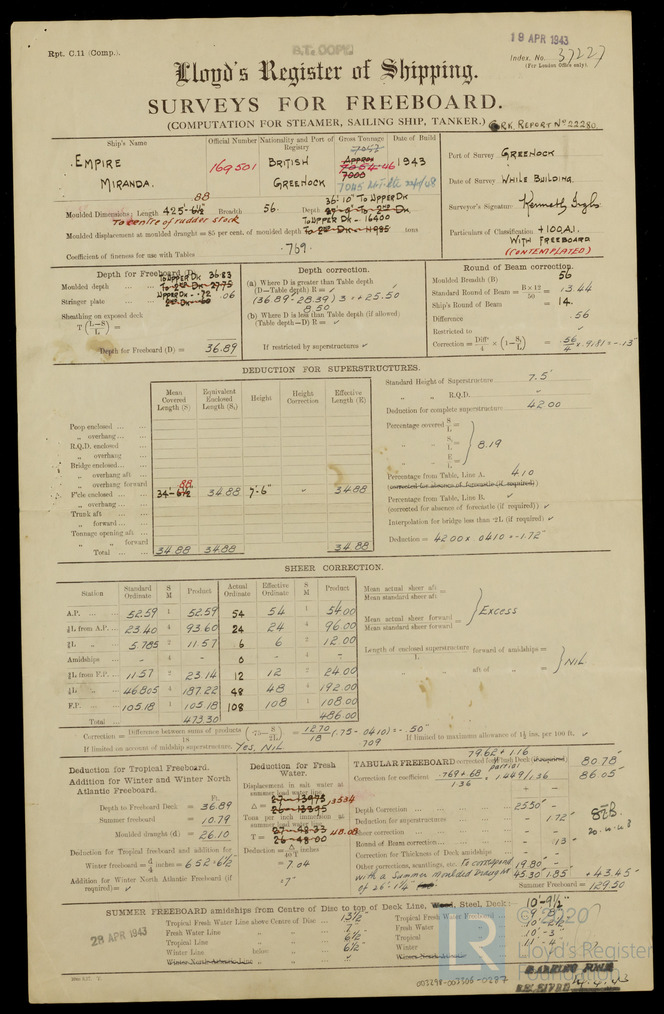 Rpt. C.11 (Comp.).
B.T. COPY
19 APR 1943
Index. No. 37227
(For London Office only).
Lloyd's Register of Shipping.
SURVEYS FOR FREEBOARD.
(COMPUTATION FOR STEAMER, SAILING SHIP, TANKER.)
GRK. REPORT No 22280.
Ship's Name
Official Number
Nationality and Port of Registry
Gross Tonnage
Date of Build
EMPIRE
MIRANDA.
169501
BRITISH
GREENOCK
1943
Port of Survey GREENOCK
Date of Survey WHILE BUILDING.
Surveyor's Signature
Particulars of Classification +100.A.1.
WITH FREEBOARD
(CONTEMPLATED)
Moulded Dimensions: Length 425'-6½" Breadth 56. Depth 36'-10" TO UPPER DK
To centre of rudder stock
88
Moulded displacement at moulded draught = 85 per cent. of moulded depth TO UPPER DK - 16400 tons
Coefficient of fineness for use with Tables .769.
Depth for Freeboard (D).
Moulded depth TO UPPER DK 36.83
Stringer plate UPPER DK - .72 .06
Sheathing on exposed deck
T (L-S / L) =
Depth for Freeboard (D) = 36.89
Depth correction.
(a) Where D is greater than Table depth
(D—Table depth) R =
(36.89-28.39) 3 = +25.50
8.50
(b) Where D is less than Table depth (if allowed)
(Table depth—D) R =
If restricted by superstructures
Round of Beam correction.
Moulded Breadth (B) 56
Standard Round of Beam = B×12/50 = 13.44
Ship's Round of Beam = 14.
Difference .56
Restricted to
Correction = Diff/4 × (1-S₁/L) = .56/4 × .9181 = -.13"
DEDUCTION FOR SUPERSTRUCTURES.
Mean Covered Length (S)
Equivalent Enclosed Length (S₁)
Height
Height Correction
Effective Length (E)
Poop enclosed
„ overhang
R.Q.D. enclosed
„ overhang
Bridge enclosed
„ overhang aft
„ overhang forward
F'cle enclosed 34'-6½" 88 34.88 7'-6" 34.88
„ overhang
Trunk aft
„ forward
Tonnage opening aft
„ „ forward
Total 34.88 34.88 34.88
Standard Height of Superstructure 7.5'
„ „ R.Q.D.
Deduction for complete superstructure 42.00
Percentage covered S/L =
„ „ S₁/L = 8.19
„ „ E/L =
Percentage from Table, Line A. 4.10
(corrected for absence of forecastle (if required))
Percentage from Table, Line B.
(corrected for absence of forecastle (if required))
Interpolation for bridge less than ·2L (if required)
Deduction = 42.00 × .0410 = -1.72"
SHEER CORRECTION.
Station
Standard Ordinate
S M
Product
Actual Ordinate
Effective Ordinate
S M
Product
A.P. 52.59 1 52.59 54 54 1 54.00
⅙L from A.P. 23.40 4 93.60 24 24 4 96.00
⅓L „ 5.785 2 11.57 6 6 2 12.00
Amidships - 4 - 0 4 -
⅓L from F.P. 11.57 2 23.14 12 12 2 24.00
⅙L „ 46.805 4 187.22 48 48 4 192.00
F.P. 105.18 1 105.18 108 108 1 108.00
Total 473.30 486.00
Mean actual sheer aft =
Mean standard sheer aft
Mean actual sheer forward =
Mean standard sheer forward
Excess
Length of enclosed superstructure forward of amidships =
L
„ „ aft of „ =
NIL
Correction = Difference between sums of products / 18 (·75- S/2L) = 12.70/18 (.75-.0410) = -.50"
.709
If limited on account of midship superstructure. Yes, NIL
If limited to maximum allowance of 1½ ins. per 100 ft.
Deduction for Tropical Freeboard.
Addition for Winter and Winter North Atlantic Freeboard.
Ft.
Depth to Freeboard Deck = 36.89
Summer freeboard = 10.79
Moulded draught (d) = 26.10
Deduction for Tropical freeboard and addition for
Winter freeboard = d/4 inches = 6.52 = 6½"
Addition for Winter North Atlantic Freeboard (if required) =
Deduction for Fresh Water.
Displacement in salt water at summer load water line
Δ = 13534
Tons per inch immersion at summer load water line
T = 48.08
Deduction = Δ/40T inches
= 7.04
= 7"
TABULAR FREEBOARD corrected for Flush Deck (if required)
79.62 + 1.16
80.78"
Correction for coefficient .769+.68 / 1.36 = 1.449/1.36 86.05"
+ -
Depth Correction 25.50 -
Deduction for superstructures - 1.72"
Sheer correction - -
Round of Beam correction - .13
Correction for Thickness of Deck amidships - -
Other corrections, scantlings, etc. To correspond 19.80 -
with a Summer Moulded Draught of 26'-1¼" 45.30 1.85 +43.45"
Summer Freeboard = 129.50
SUMMER FREEBOARD amidships from Centre of Disc to top of Deck Line, Wood, Steel, Deck:— 10'-9½"
Tropical Fresh Water Line above Centre of Disc 13½"
Fresh Water Line „ „ 7"
Tropical Line „ „ 6½"
Winter Line below „ 6½"
Winter North Atlantic Line „ „
Tropical Fresh Water Freeboard 9'-8"
Fresh Water „ 10'-2½"
Tropical „ 10'-3"
Winter „ 11'-4"
Winter North Atlantic „
28 APR 1943
©2020
LR
Lloyd's Register
Foundation
003298-003306-0287
MARKING FORM
RECEIVED